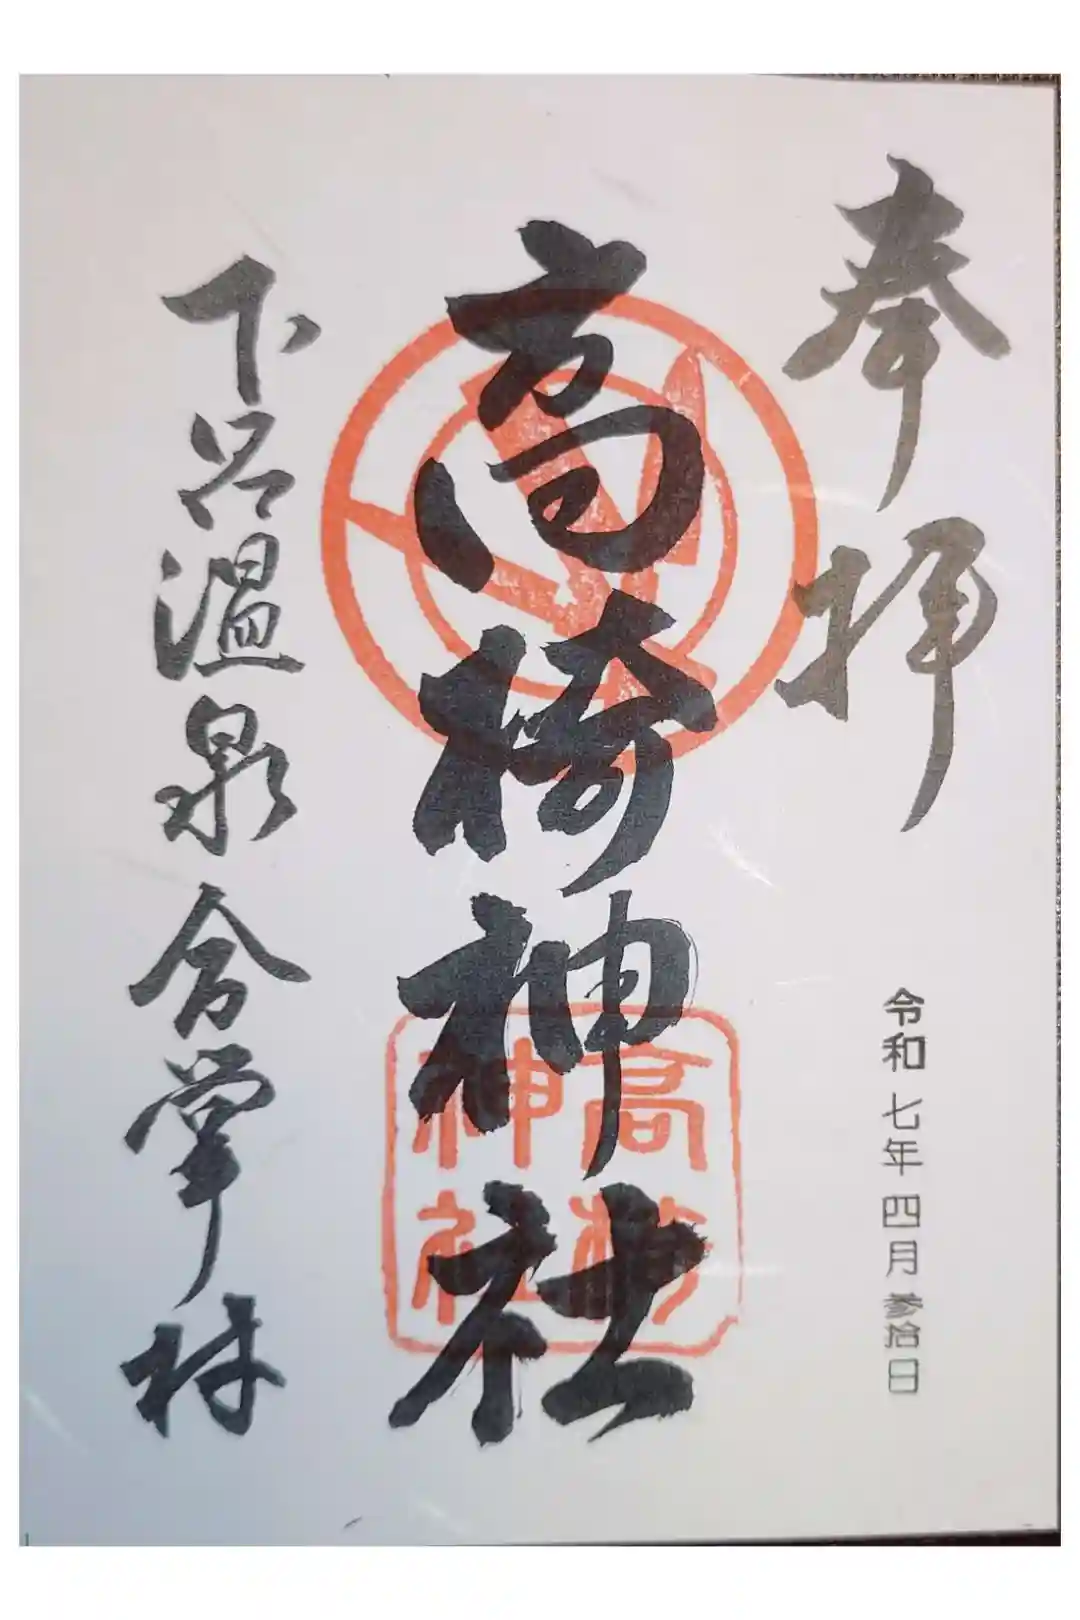 奉拝
令和七年四月参拾日
高椅神社
高椅
神社
下呂温泉合掌村